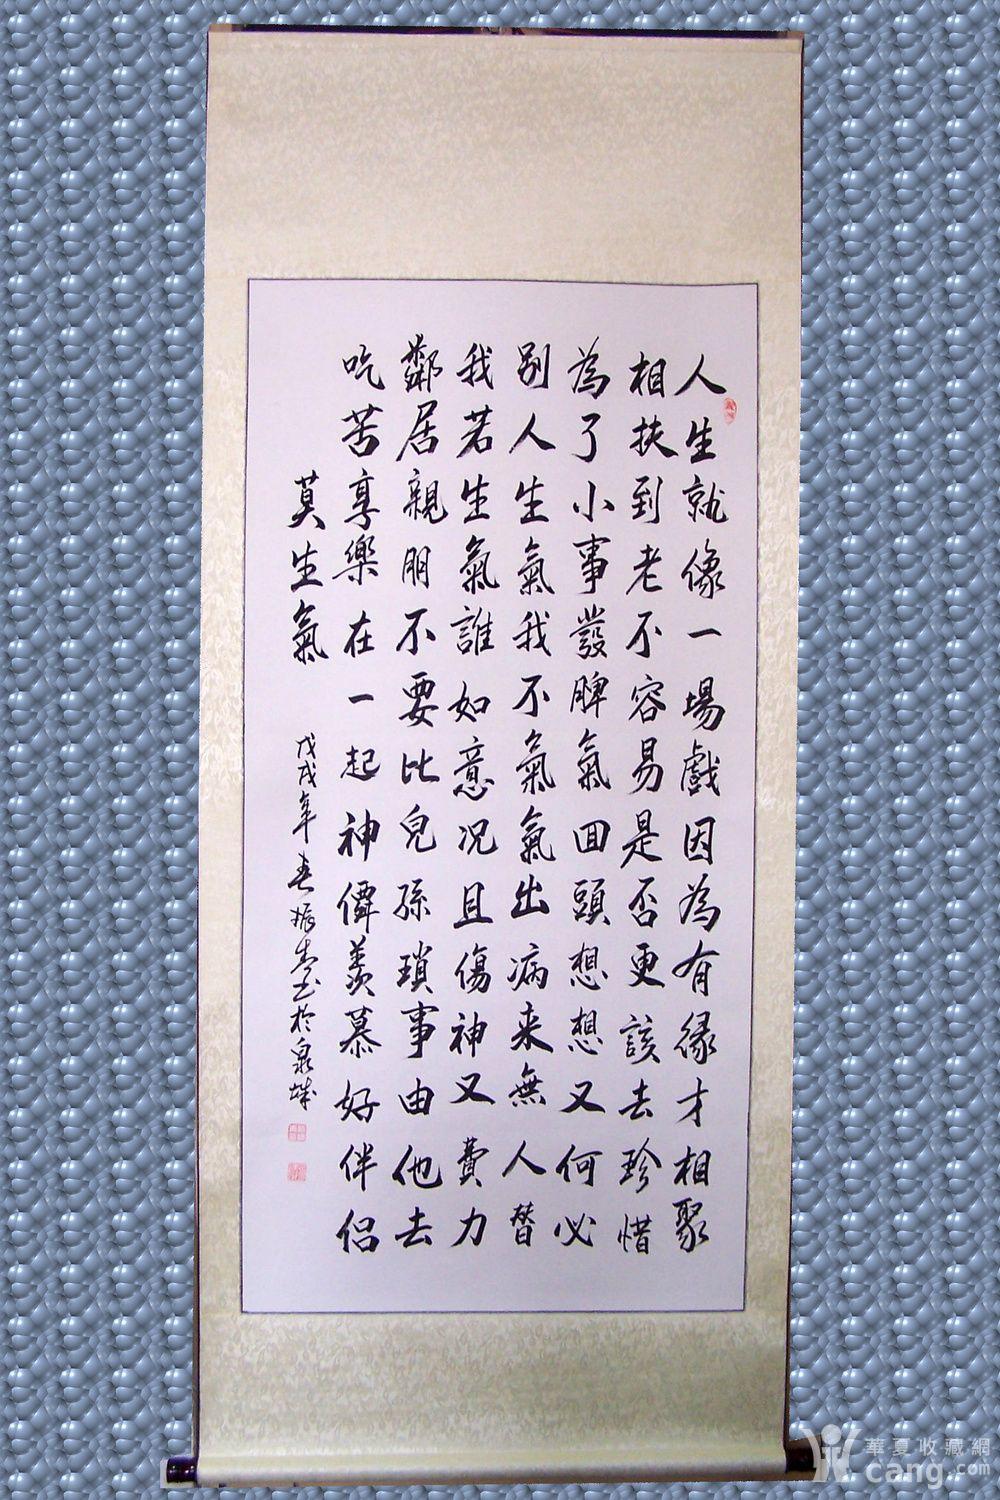 人生就像一場戲因為有緣才相聚
相扶到老不容易是否更該去珍惜
為了小事發脾氣回頭想想又何必
別人生氣我不氣氣出病来無人替
我若生氣誰如意況且傷神又費力
鄰居親朋不要比兒孫瑣事由他去
吃苦享樂在一起神僊羨慕好伴侶
莫生氣
戊戌年春振书於泉城
華夏收藏網
cang.com